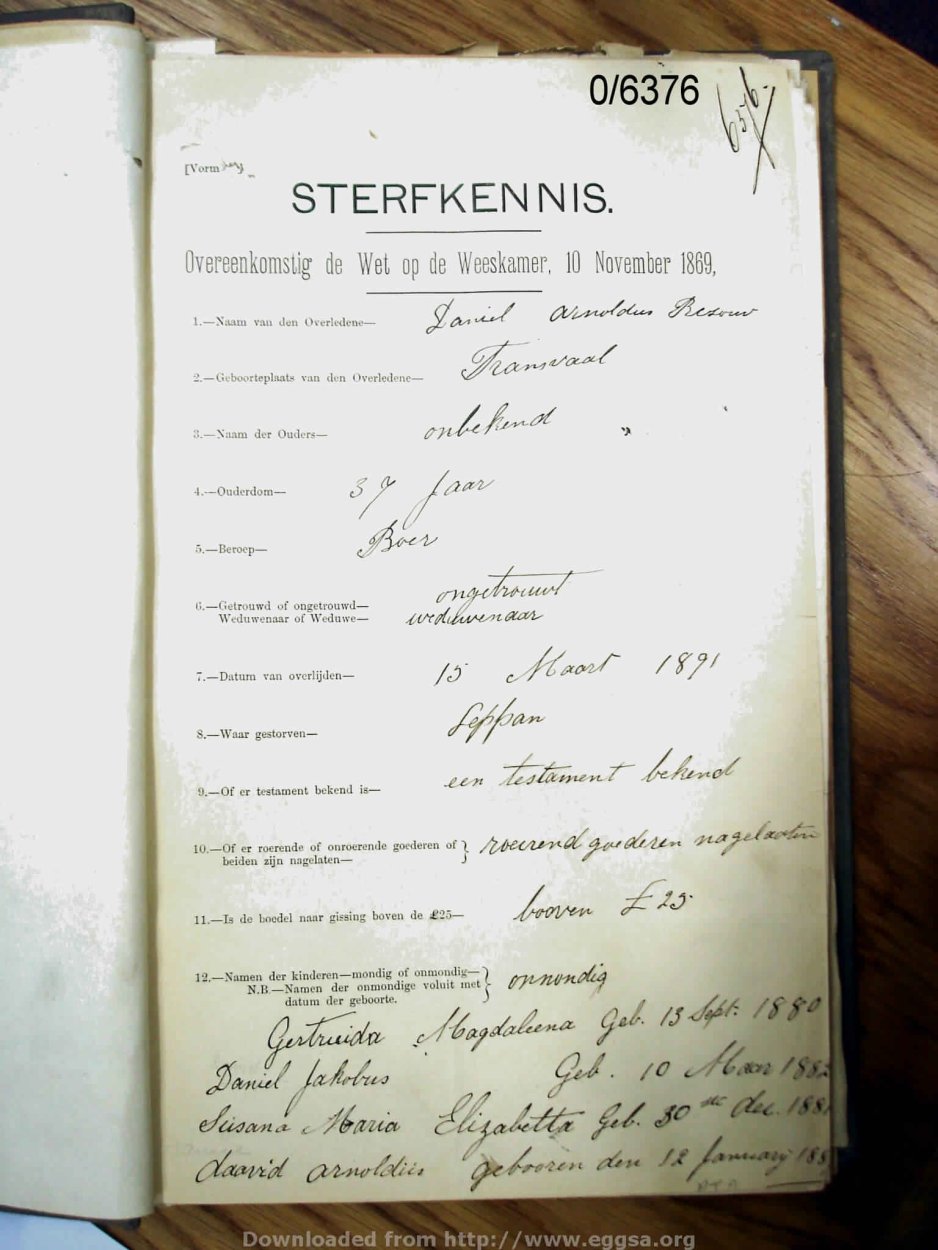 0/6376
656.
[Vorm
STERFKENNIS.
Overeenkomstig de Wet op de Weeskamer, 10 November 1869,
1.—Naam van den Overledene— Daniel Arnoldus Bezouw
2.—Geboorteplaats van den Overledene— Transvaal
3.—Naam der Ouders— onbekend "
4.—Ouderdom— 37 Jaar
5.—Beroep— Boer
6.—Getrouwd of ongetrouwd— ongetrouwt
Weduwenaar of Weduwe— weduwenaar
7.—Datum van overlijden— 15 Maart 1891
8.—Waar gestorven— Seppan
9.—Of er testament bekend is— een testament bekend
10.—Of er roerende of onroerende goederen of } roerend goederen nagelaten
beiden zijn nagelaten—
11.—Is de boedel naar gissing boven de £25— booven £ 25
12.—Namen der kinderen—mondig of onmondig— } onmondig
N.B.—Namen der onmondige voluit met
datum der geboorte.
Gertruida Magdaleena Geb. 13 Sept. 1880
Daniel Jakobus Geb. 10 Maar
Susana Maria Elizabetta Geb. 30 dec.
daavid arnoldus gebooren den 12 January
Downloaded from http://www.eggsa.org